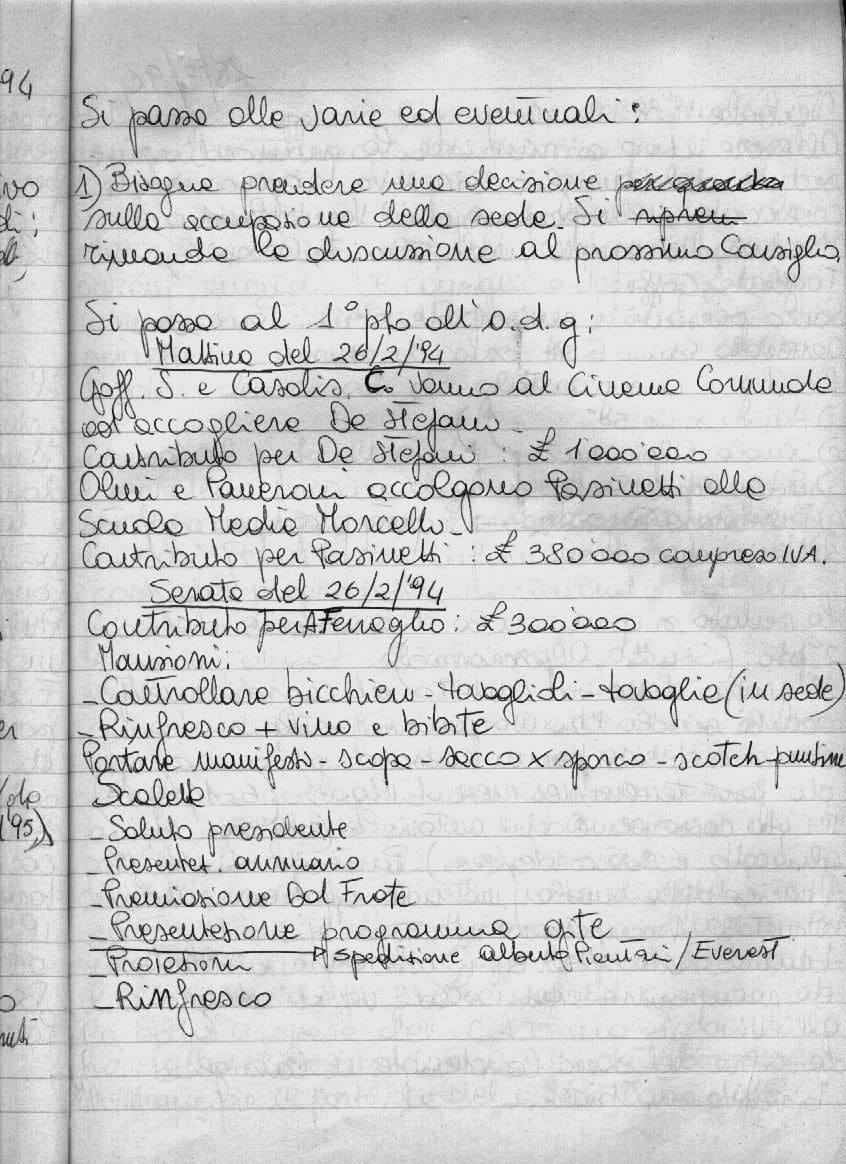 94
Si passa alle varie ed eventuali:
ivo 1) Bisogna prendere una decisione
di; sulla occupazione della sede. Si
rimanda la discussione al prossimo Consiglio.
Si passa al 1° pto all'o.d.g:
Mattino del 26/2/'94
Goff. S. e Casalis. C. vanno al Cinema Comunale
ad accogliere De Stefani.
Contributo per De Stefani: £ 1000'000
e accolgono Pasinetti alla
Scuola Media Marcello.
Contributo per Pasinetti: £ 380'000 compreso IVA.
Serata del 26/2/'94
Contributo per A Fenoglio: £ 300'000
Mansioni:
- Controllare bicchieri - tovaglioli - tovaglie (in sede)
er - Rinfresco + vino e bibite
Portare manifesti - scopa - sacco x sporco - scotch - puntine
Scaletta
'95) - Saluto presidente
- Presentaz. annuario
- Premiazione Dal Frate
- Presentazione programma gite
- Proiezioni → spedizione Alberto / Everest
- Rinfresco